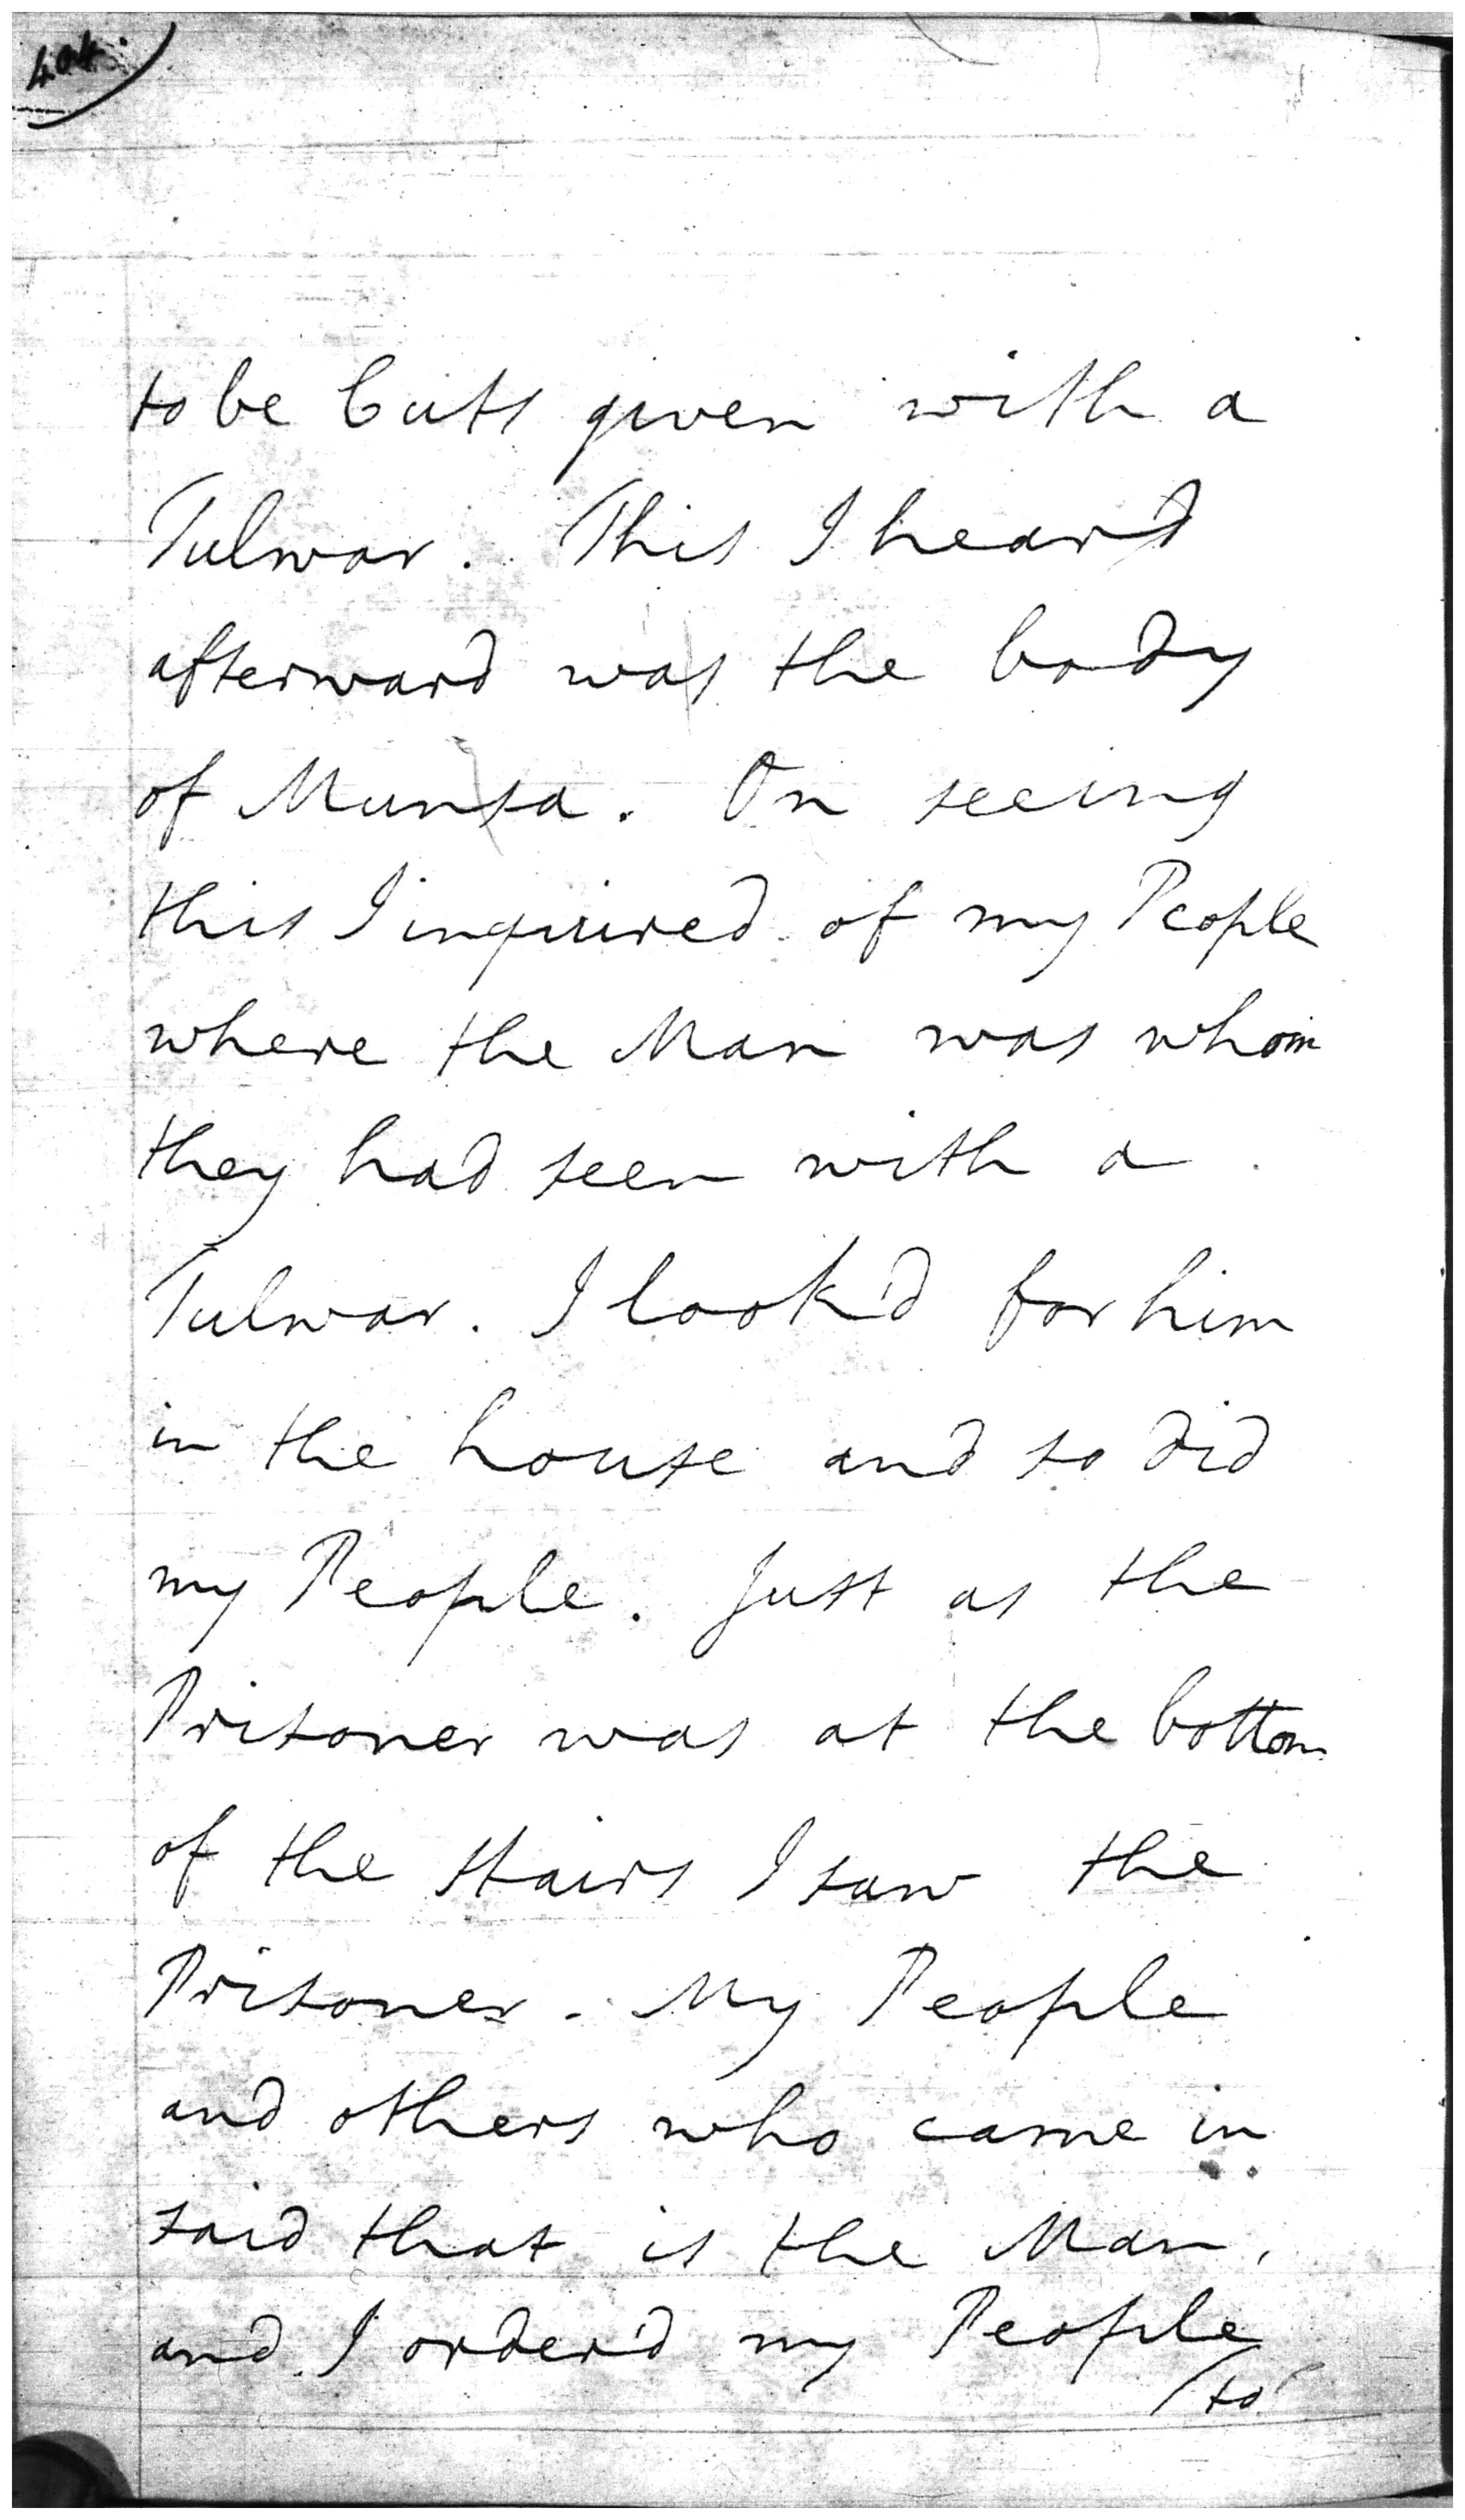 404.
to be Cuts given with a
Tulwar. This I heard
afterward was the body
of Munsa. On seeing
this I inquired of my People
where the Man was whom
they had seen with a
Tulwar. I look'd for him
in the house and so did
my People. Just as the
Prisoner was at the bottom
of the stairs I saw the
Prisoner. My People
and others who came in
said that is the Man,
and I order'd my People
/to